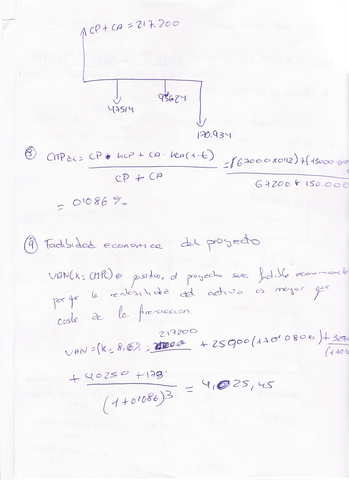 CP + CA = 217.200
47514
95624
170.934
⑧ CMPdi = CP * KCP + CA · KCA(1-t) = (67000 x 0'12) + (15000
CP + CA
67200 + 150.000
= 0'086 %
⑨ Factibilidad economica del proyecto
VAN(K=CMP) es positivo, el proyecto sera factible economicamente
porque la rentabilidad del activo es mayor que
coste de la financiacion.
217200
VAN = (K = 8,6% = + 25900 (1+0'0806) +
+ 40250 + 179
(1+0'086)³
= 4,025,45